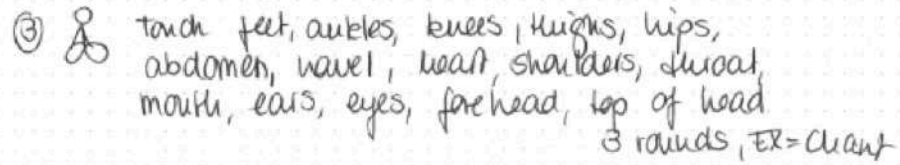 ③ touch feet, ankles, knees, thighs, hips,
abdomen, navel, heart, shoulders, throat,
mouth, ears, eyes, forehead, top of head
3 rounds, EX=Chant